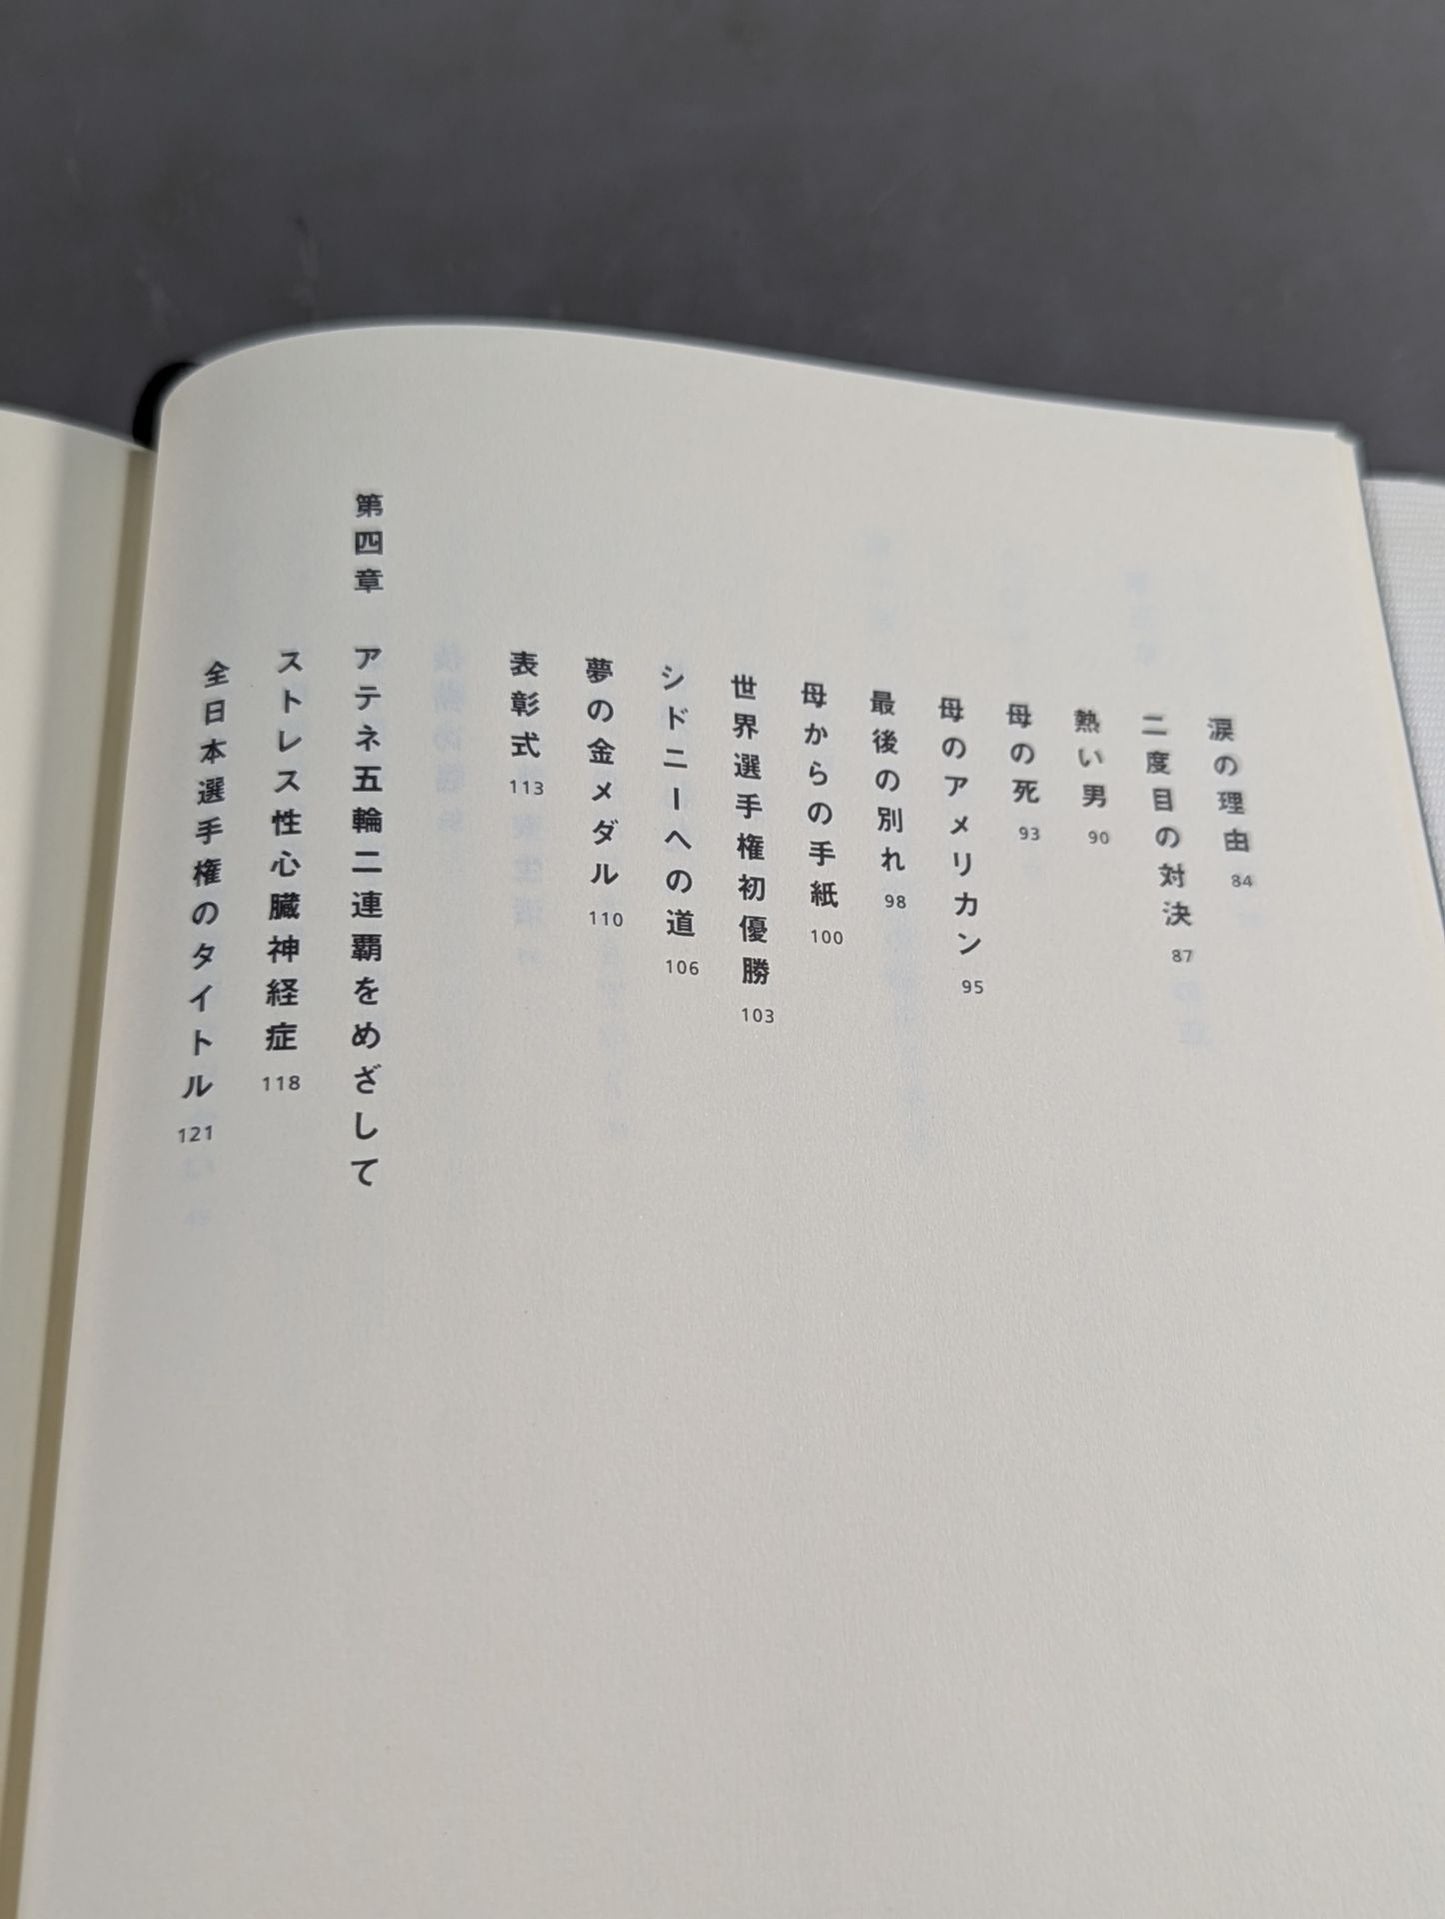 涙の理由 84
二度目の対決 87
熱い男 90
母の死 93
母のアメリカン 95
最後の別れ 98
母からの手紙 100
世界選手権初優勝 103
シドニーへの道 106
夢の金メダル 110
表彰式 113
第四章 アテネ五輪二連覇をめざして
ストレス性心臓神経症 118
全日本選手権のタイトル 121